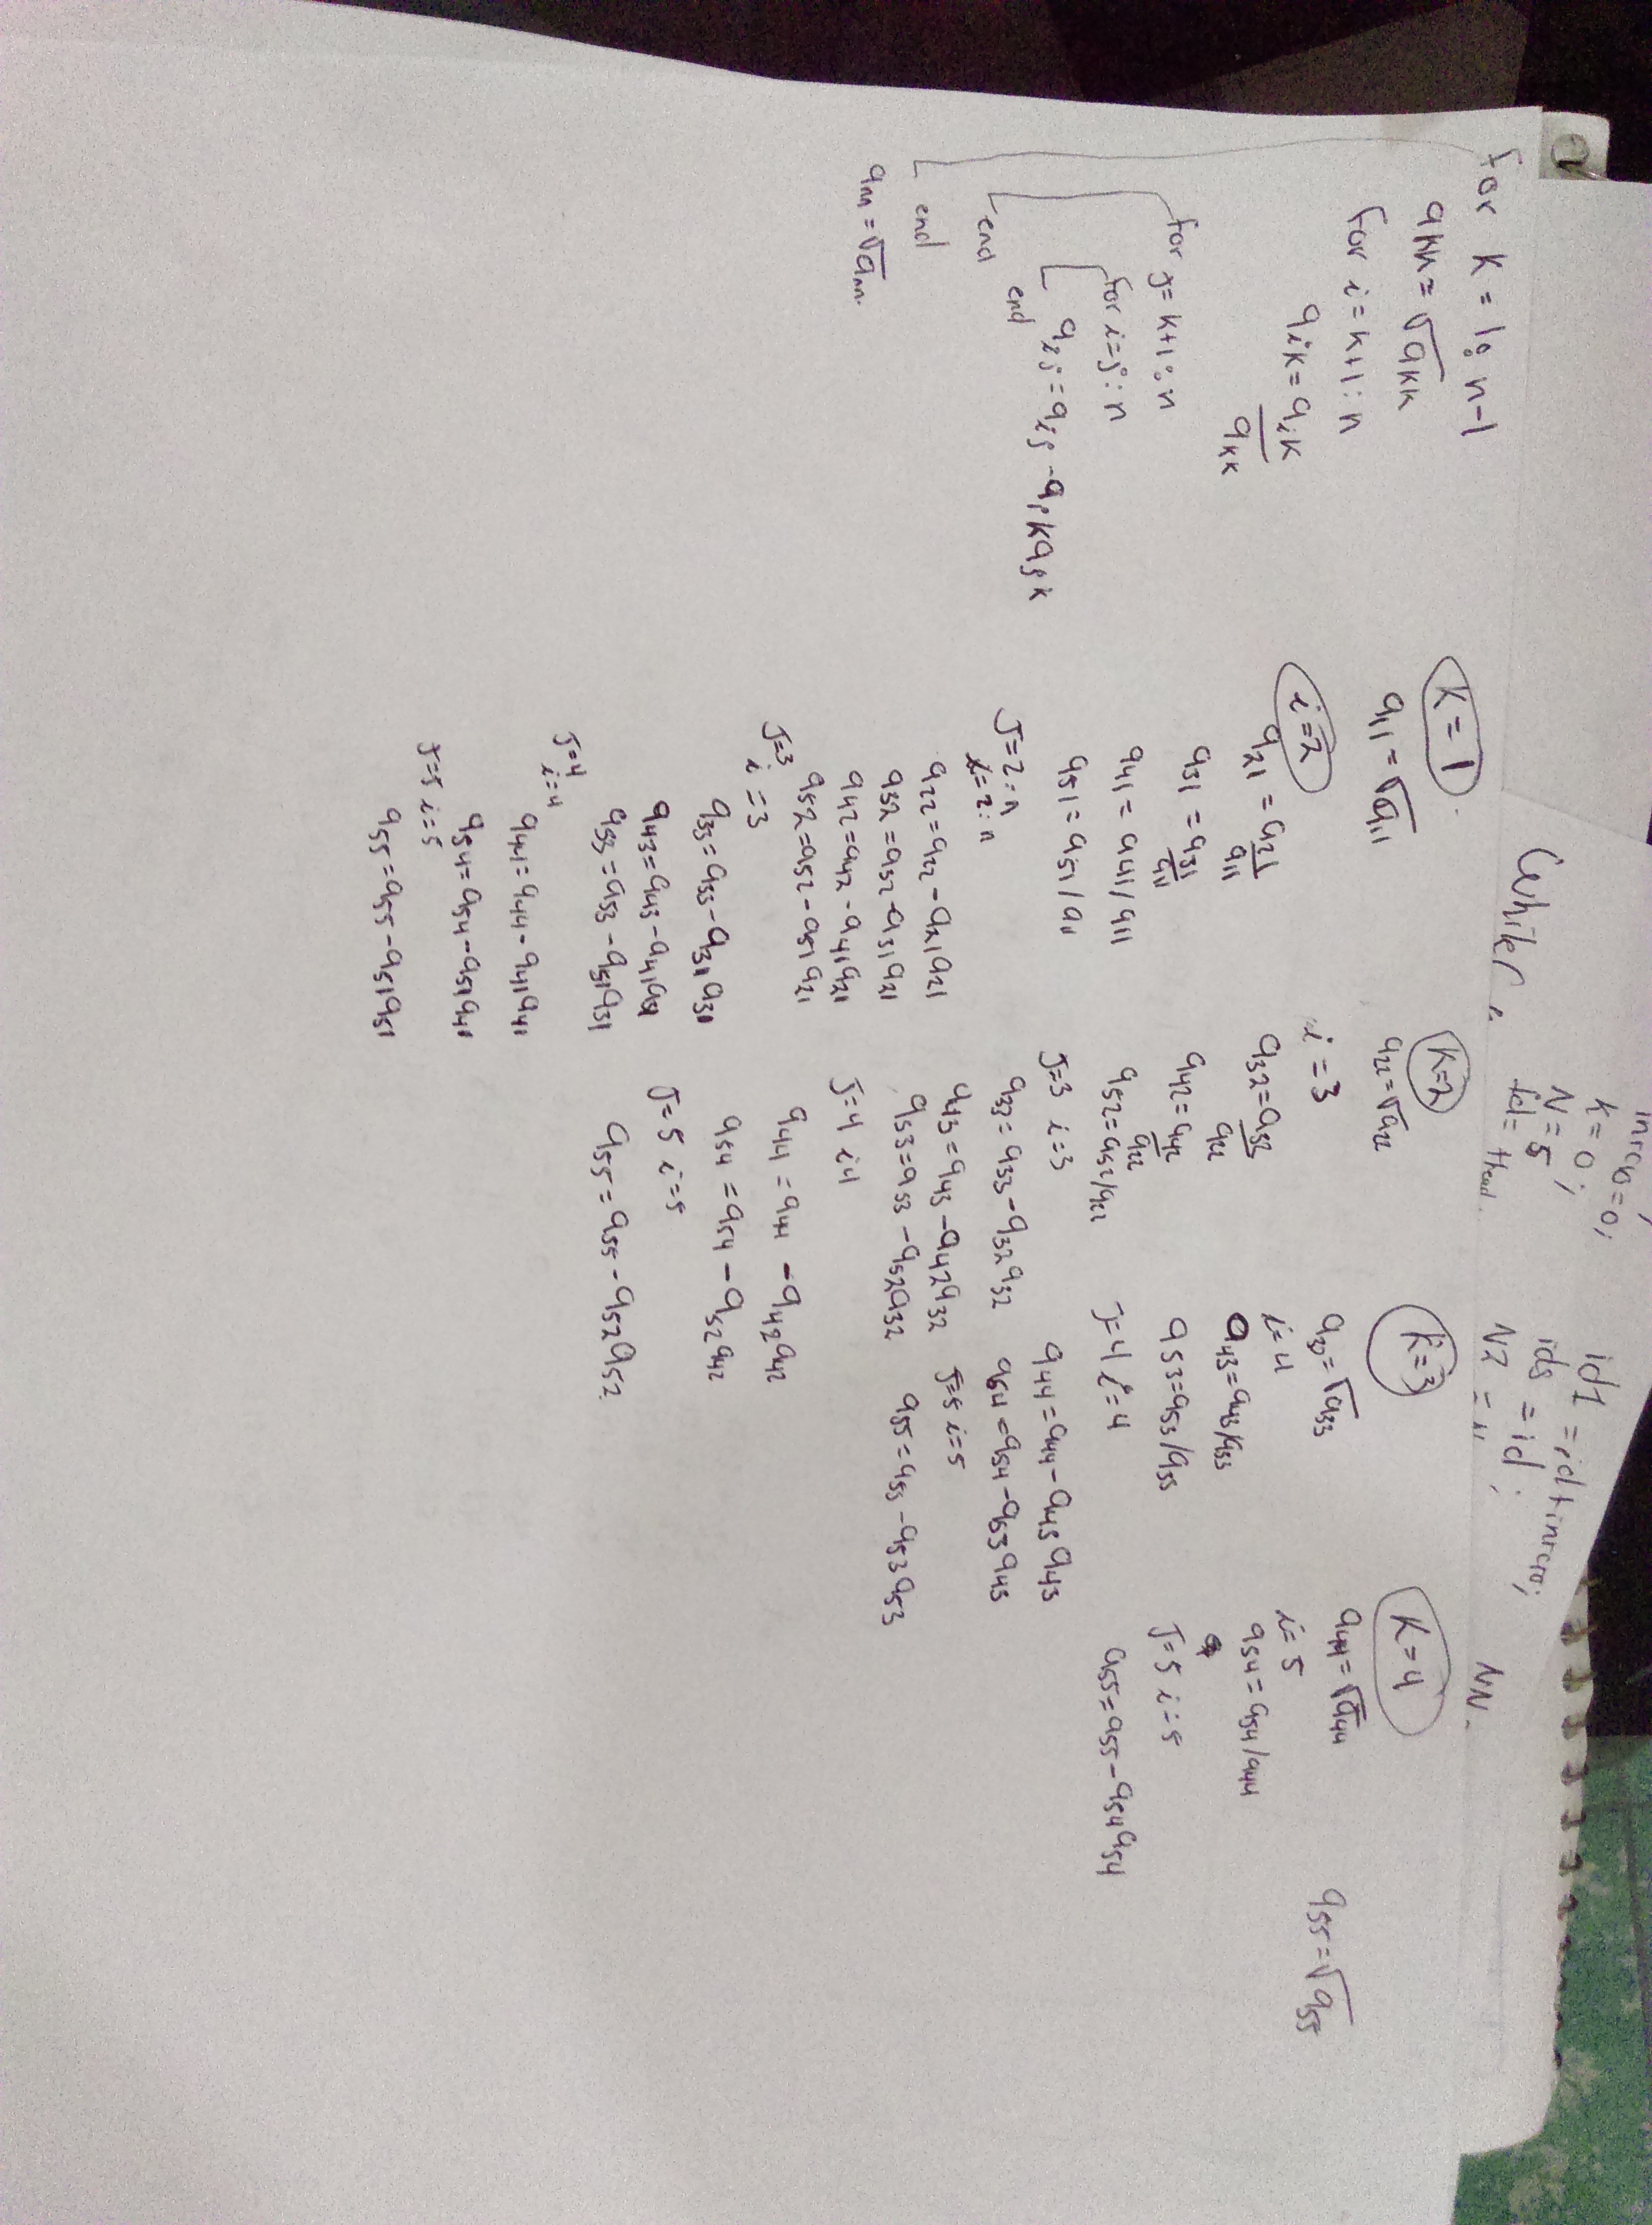 inrcro=0;
k=0;
N=5
id1 = id+incro;
ids = id;
N2 = "
NN.
While(
for k = 1:n-1
akk=√akk
for i=k+1:n
aik=aik
akk
for j=k+1:n
for i=j:n
aij=aij-aikajk
end
end
end
ann=√ann.
k=1
a11=√a11
i=2
a21=a21
a11
a31=a31
a11
a41=a41/a11
a51=a51/a11
J=2:n
i=2:n
a22=a22-a21a21
a32=a32-a31a21
a42=a42-a41a21
a52=a52-a51a21
J=3
i=3
a33=a33-a31a31
a43=a43-a41a31
a53=a53-a51a31
J=4
i=4
a44=a44-a41a41
a54=a54-a51a41
J=5 i=5
a55=a55-a51a51
k=2
a22=√a22
i=3
a32=a32
a22
a42=a42
a22
a52=a52/a22
J=3 i=3
a33=a33-a32a32
a43=a43-a42a32
a53=a53-a52a32
J=4 i4
a44=a44-a42a42
a54=a54-a52a42
J=5 i=5
a55=a55-a52a52
k=3
a33=√a33
i=4
a43=a43/a33
a53=a53/a33
J=4 i=4
a44=a44-a43a43
a54=a54-a53a43
J=5 i=5
a55=a55-a53a53
K=4
a44=√a44
i=5
a54=a54/a44
J=5 i=5
a55=a55-a54a54
a55=√a55